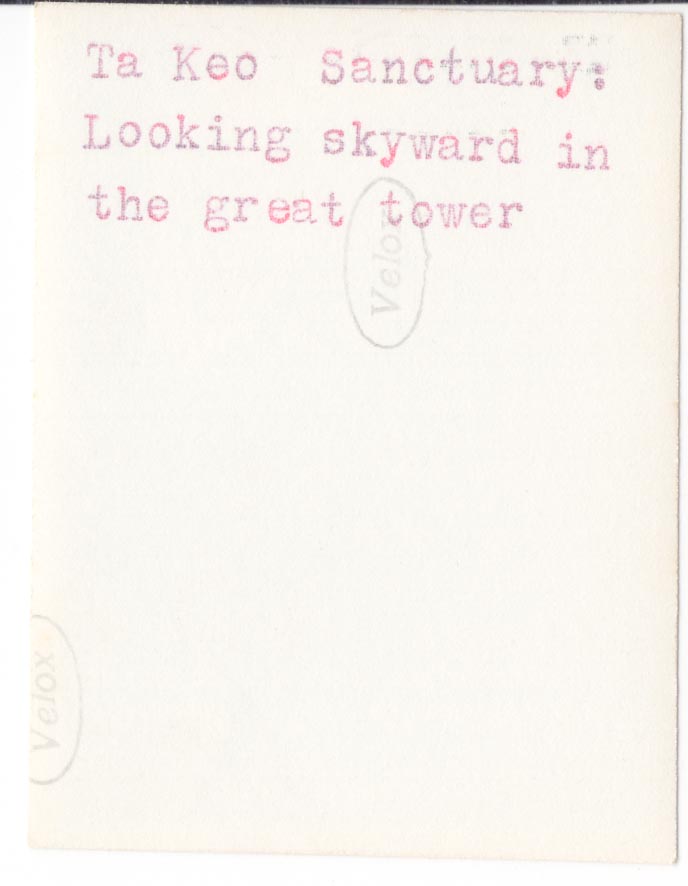 Ta Keo Sanctuary:
Looking skyward in
the great tower
Velox
Velox